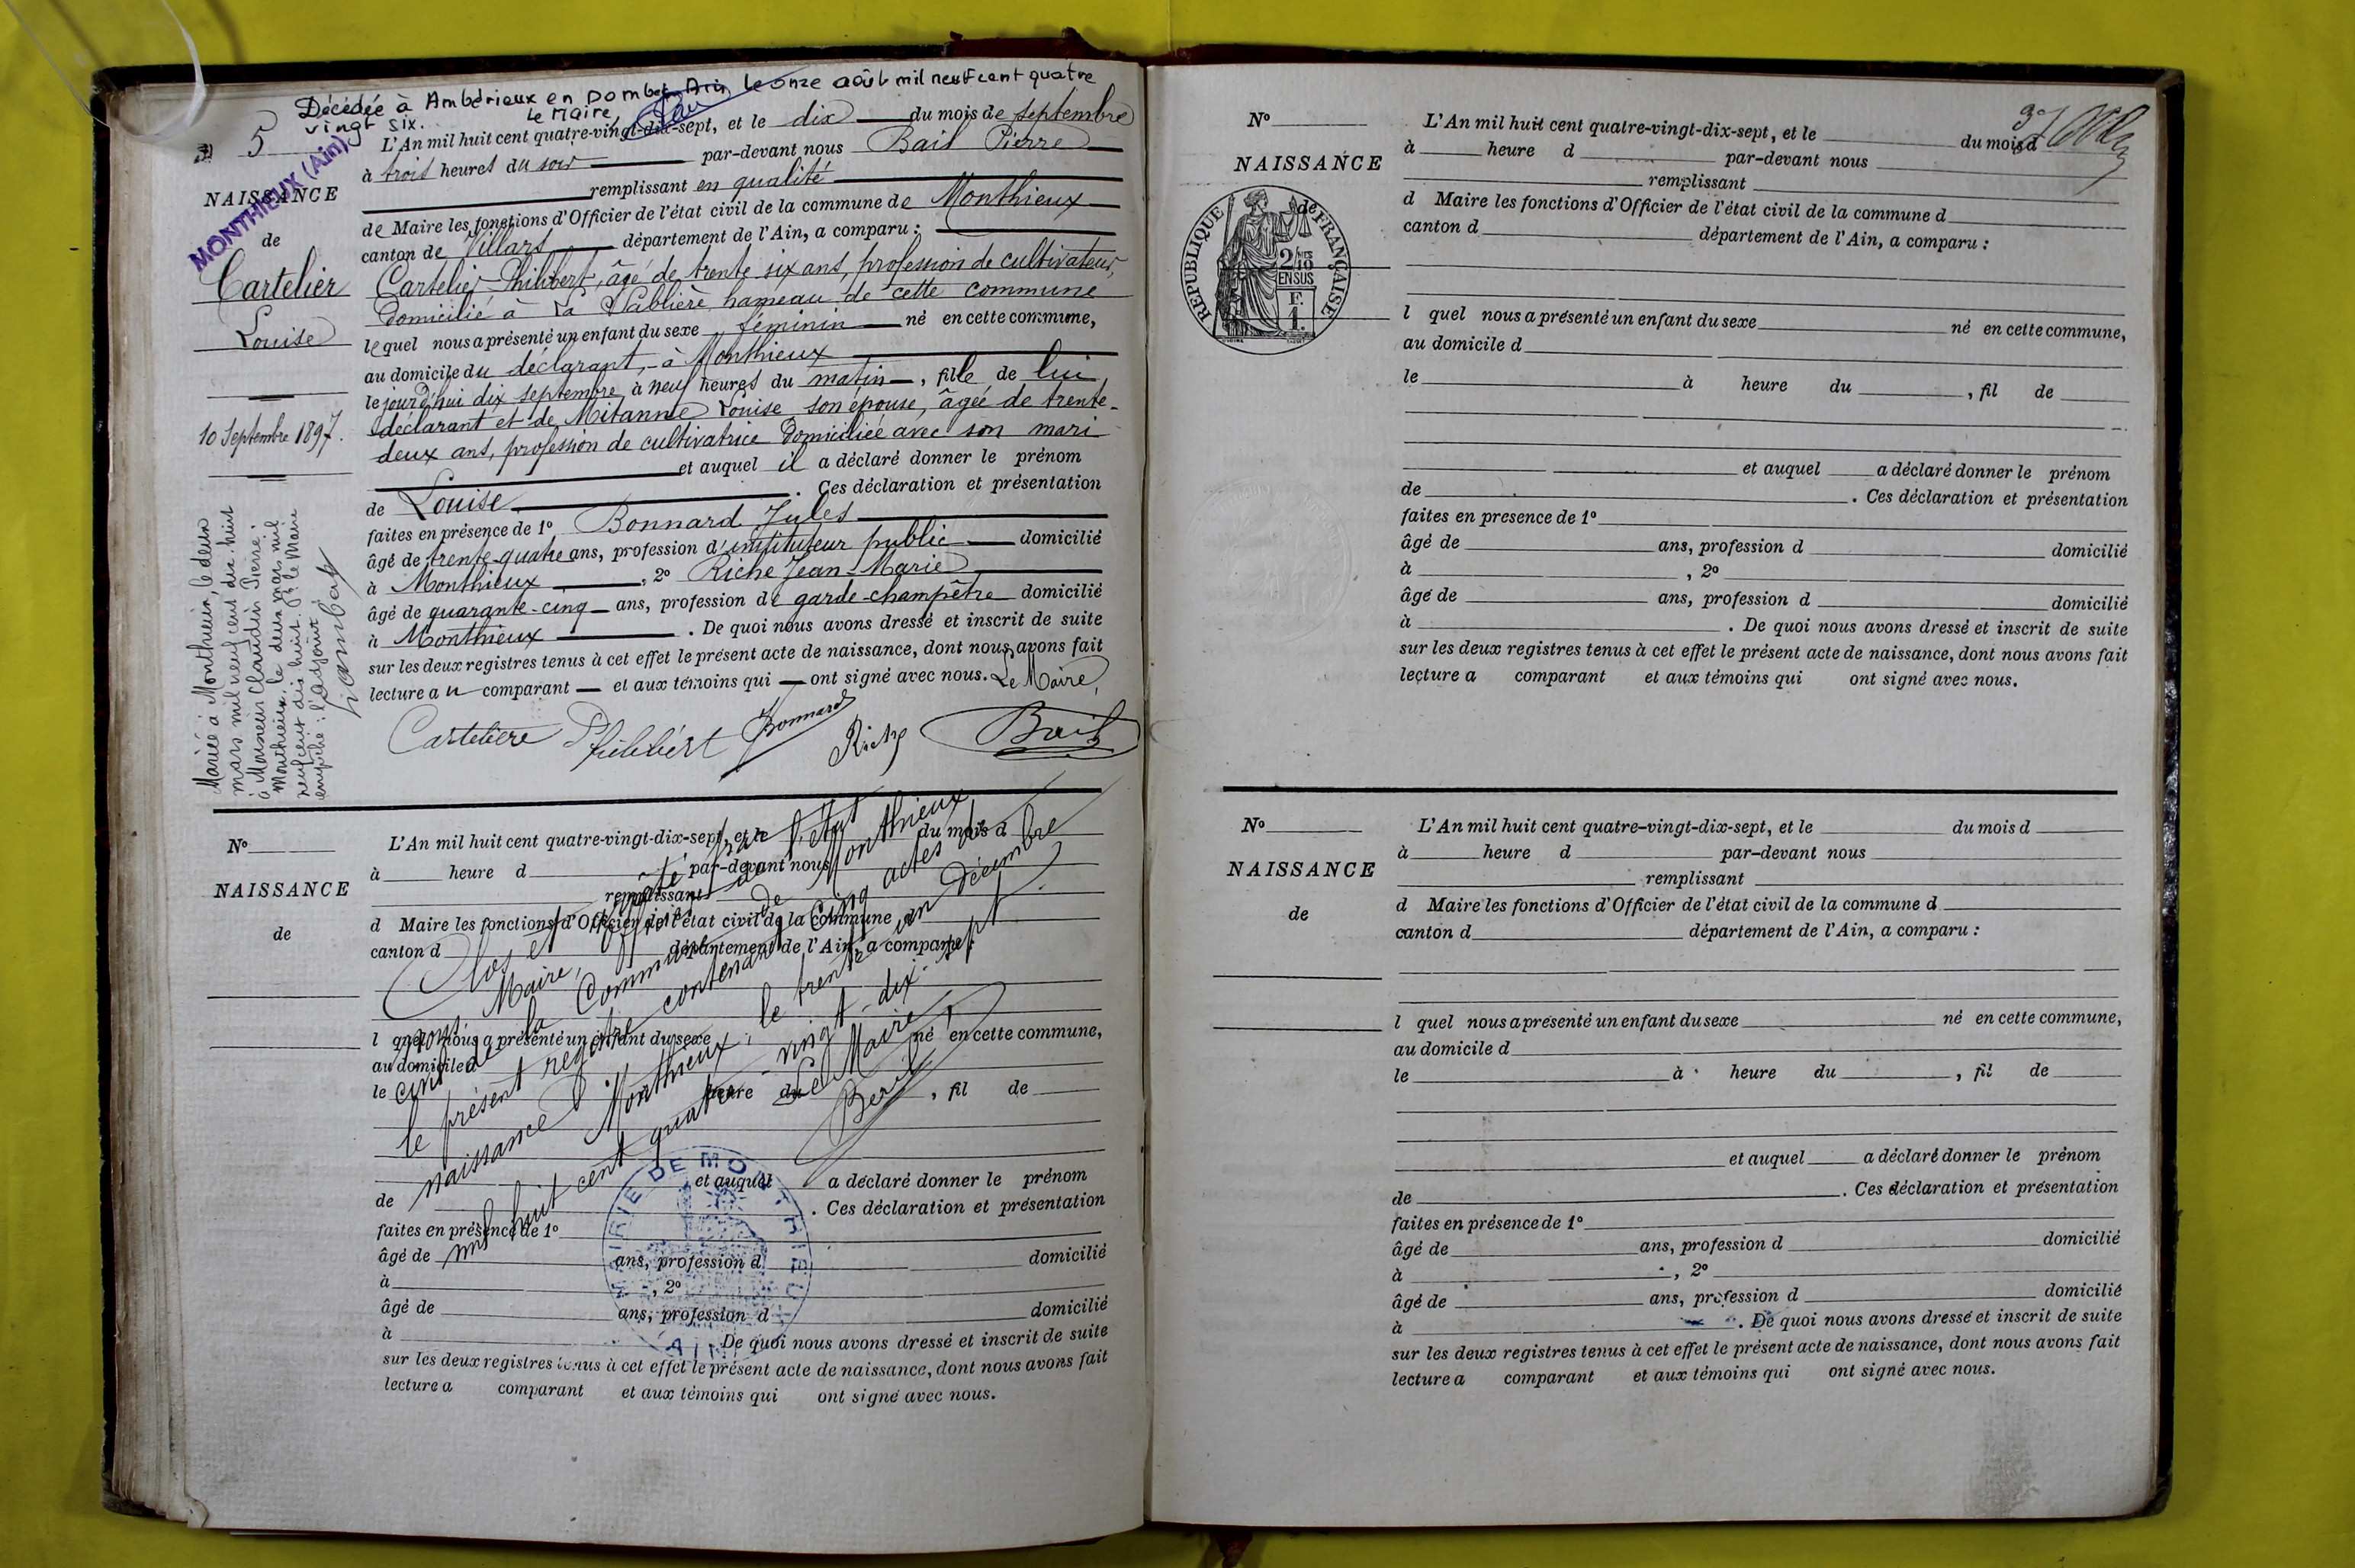 Décédée à Ambérieux en Dombes Ain le onze août mil neuf cent quatre
vingt six.
le Maire,
5
MONTHIEUX (Ain)
NAISSANCE
de
Cartelier
Louise
10 Septembre 1897.
L'An mil huit cent quatre-vingt-dix-sept, et le dix du mois de septembre
à trois heures du soir par-devant nous Bail Pierre
remplissant en qualité
de Maire les fonctions d'Officier de l'état civil de la commune de Monthieux
canton de Villars département de l'Ain, a comparu :
Cartelier Philibert, âgé de trente six ans, profession de cultivateur,
domicilié à La Sablière hameau de cette commune
lequel nous a présenté un enfant du sexe féminin né en cette commune,
au domicile du déclarant, à Monthieux
le jourd'hui dix septembre à neuf heures du matin, fille de lui
déclarant et de Mitanne Louise son épouse, âgée de trente-
deux ans, profession de cultivatrice domiciliée avec son mari
et auquel il a déclaré donner le prénom
de Louise . Ces déclaration et présentation
faites en présence de 1° Bonnard Jules
âgé de trente-quatre ans, profession d'instituteur public domicilié
à Monthieux , 2° Riche Jean-Marie
âgé de quarante-cinq ans, profession de garde-champêtre domicilié
à Monthieux . De quoi nous avons dressé et inscrit de suite
sur les deux registres tenus à cet effet le présent acte de naissance, dont nous avons fait
lecture au comparant et aux témoins qui ont signé avec nous. Le Maire,
Cartelier Philibért Bonnard Riche Bail
Mariée à Monthieux, le deux
mars mil neuf cent dix huit
à Monsieur Claudin Pierre.
Monthieux, le deux mars mil
neuf cent dix huit. Pr le Maire
empêché : l'adjoint
N°
NAISSANCE
de
L'An mil huit cent quatre-vingt-dix-sept, et le du mois d
à heure d par-devant nous
remplissant
d Maire les fonctions d'Officier de l'état civil de la commune
canton d département de l'Ain, a comparu :
l quel nous a présenté un enfant du sexe né en cette commune,
au domicile d
le heure du , fil de
et auquel a déclaré donner le prénom
de . Ces déclaration et présentation
faites en présence de 1°
âgé de ans, profession d domicilié
à , 2°
âgé de ans, profession d domicilié
à . De quoi nous avons dressé et inscrit de suite
sur les deux registres tenus à cet effet le présent acte de naissance, dont nous avons fait
lecture a comparant et aux témoins qui ont signé avec nous.
Clos et par
nous, Maire, de l'état
civil de la Commune de Monthieux
le présent registre contenant cinq actes de
naissance
à Monthieux, le trente un Décembre
mil huit cent quatre-vingt-dix-sept.
Le Maire,
Bail
MAIRIE DE MONTHIEUX
AIN
N°
NAISSANCE
RÉPUBLIQUE FRANÇAISE
2/10
EN SUS
F.
1.
L'An mil huit cent quatre-vingt-dix-sept, et le du mois d
à heure d par-devant nous
remplissant
d Maire les fonctions d'Officier de l'état civil de la commune d
canton d département de l'Ain, a comparu :
l quel nous a présenté un enfant du sexe né en cette commune,
au domicile d
le à heure du , fil de
et auquel a déclaré donner le prénom
de . Ces déclaration et présentation
faites en presence de 1°
âgé de ans, profession d domicilié
à , 2°
âgé de ans, profession d domicilié
à . De quoi nous avons dressé et inscrit de suite
sur les deux registres tenus à cet effet le présent acte de naissance, dont nous avons fait
lecture a comparant et aux témoins qui ont signé avec nous.
N°
NAISSANCE
de
L'An mil huit cent quatre-vingt-dix-sept, et le du mois d
à heure d par-devant nous
remplissant
d Maire les fonctions d'Officier de l'état civil de la commune d
canton d département de l'Ain, a comparu :
l quel nous a présenté un enfant du sexe né en cette commune,
au domicile d
le à heure du , fil de
et auquel a déclaré donner le prénom
de . Ces déclaration et présentation
faites en présence de 1°
âgé de ans, profession d domicilié
à , 2°
âgé de ans, profession d domicilié
à . De quoi nous avons dressé et inscrit de suite
sur les deux registres tenus à cet effet le présent acte de naissance, dont nous avons fait
lecture a comparant et aux témoins qui ont signé avec nous.